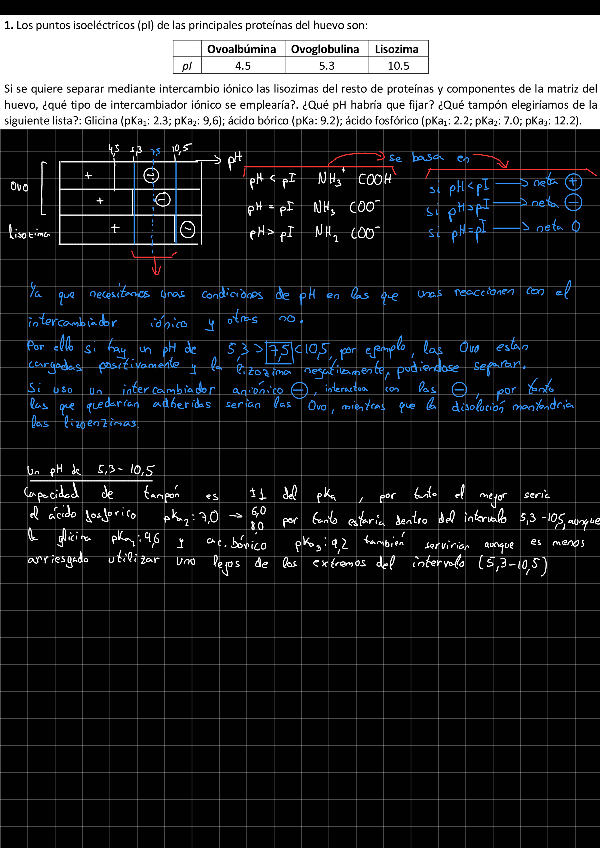 1. Los puntos isoeléctricos (pI) de las principales proteínas del huevo son:
Ovoalbúmina Ovoglobulina Lisozima
pI 4.5 5.3 10.5
Si se quiere separar mediante intercambio iónico las lisozimas del resto de proteínas y componentes de la matriz del
huevo, ¿qué tipo de intercambiador iónico se emplearía?. ¿Qué pH habría que fijar? ¿Qué tampón elegiríamos de la
siguiente lista?: Glicina (pKa₁: 2.3; pKa₂: 9,6); ácido bórico (pKa: 9.2); ácido fosfórico (pKa₁: 2.2; pKa₂: 7.0; pKa₃: 12.2).
4,5 5,3 7,5 10,5 pH
Ovo + -
+ -
Lisozima + -
pH < pI NH₃⁺ COOH
pH = pI NH₃ COO⁻
pH > pI NH₂ COO⁻
se basa en
si pH<pI → neta +
si pH>pI → neta -
si pH=pI → neta 0
Ya que necesitamos unas condiciones de pH en las que unas reaccionen con el
intercambiador iónico y otras no.
Por ello si hay un pH de 5,3 > 7,5 < 10,5, por ejemplo, las Ovo estan
cargadas positivamente y la lizozima negativamente, pudiendose separar.
Si uso un intercambiador anionico -, interactua con las -, por tanto
las que quedarían adheridas serian las Ovo, mientras que la disolución mantendria
las lizoenzimas.
Un pH de 5,3 - 10,5
Capacidad de tampón es ±1 del pKa, por tanto el mejor seria
el ácido fosforico pKa₂: 7,0 → 6,0 8,0 por tanto estaria dentro del intervalo 5,3 - 10,5, aunque
la glicina pKa₂: 9,6 y ac. bórico pKa₃: 9,2 también servirian aunque es menos
arriesgado utilizar uno lejos de los extremos del intervalo (5,3-10,5)